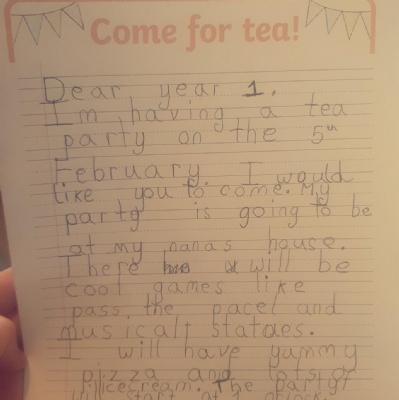 Come for tea!
Dear year 1.
Im having a tea
party on the 5th
February. I would
like you to come. My
party is going to be
at my nanas house.
There will be
cool games like
pass the pacel and
musicalt statues.
I will have yummy
pizza and lots of
icecream. The party
start at